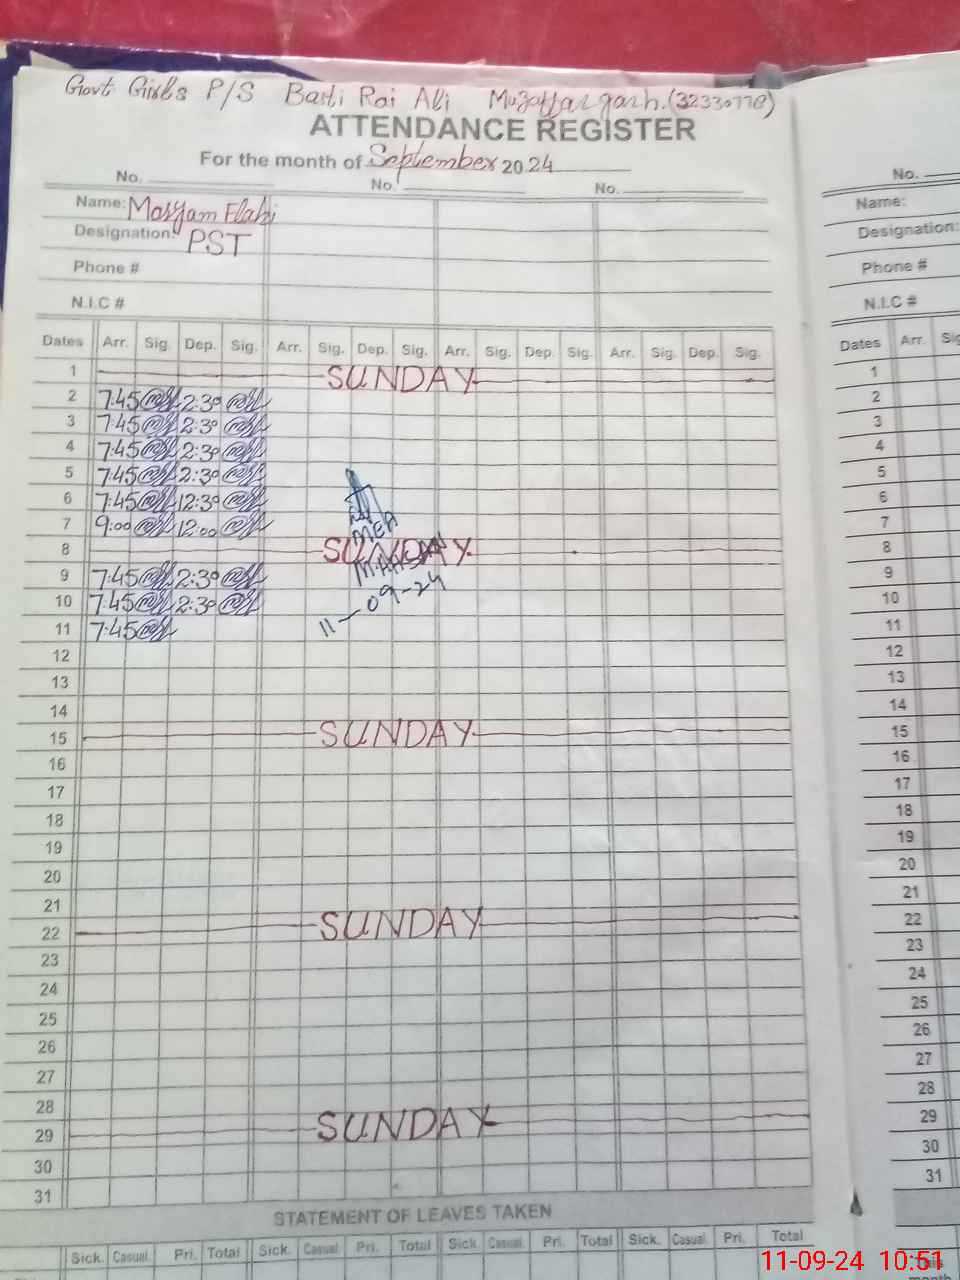 Govt Girls P/S Basti Rai Ali Muzaffargarh. (32330778)
ATTENDANCE REGISTER
For the month of September 2024
No. No. No.
Name: Maryam Elahi
Designation: PST
Phone #
N.I.C #
Dates Arr. Sig. Dep. Sig. Arr. Sig. Dep. Sig. Arr. Sig. Dep. Sig. Arr. Sig. Dep. Sig.
1 SUNDAY
2 7:45 2:30
3 7:45 2:30
4 7:45 2:30
5 7:45 2:30
6 7:45 12:30
7 9:00 12:00
MEA
8 SUNDAY
9 7:45 2:30
10 7:45 2:30
11-09-24
11 7:45
12
13
14
15 SUNDAY
16
17
18
19
20
21
22 SUNDAY
23
24
25
26
27
28
29 SUNDAY
30
31
STATEMENT OF LEAVES TAKEN
Sick. Casual. Pri. Total Sick. Casual. Pri. Total Sick. Casual. Pri. Total Sick. Casual. Pri. Total
No.
Name:
Designation:
Phone #
N.I.C #
Dates Arr.
1
2
3
4
5
6
7
8
9
10
11
12
13
14
15
16
17
18
19
20
21
22
23
24
25
26
27
28
29
30
31
11-09-24 10:51